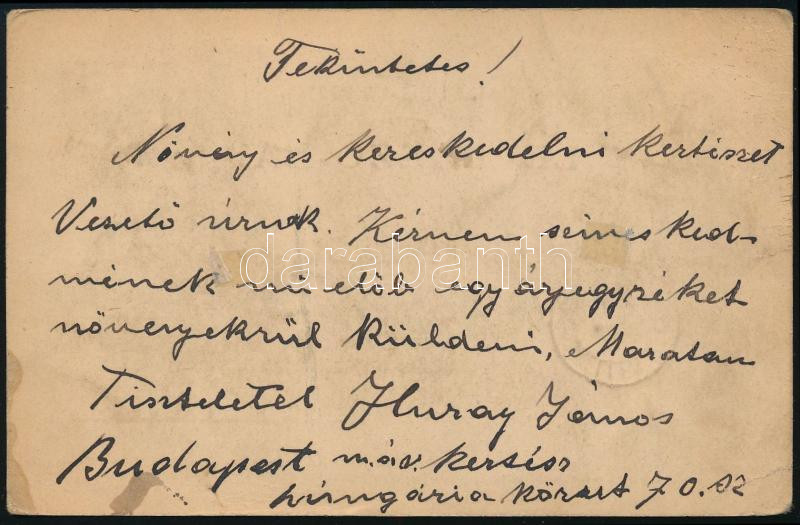 Tekintetes!
Növény és kereskedelmi kertészet
Vezető úrnak. Kérném szívesked-
ménék mielöb egy árjegyzéket
növényekrül küldeni, Maratam
Tisztelétel Huray János
Budapest máv. kertész
Hungária körut 70. sz
darabanth